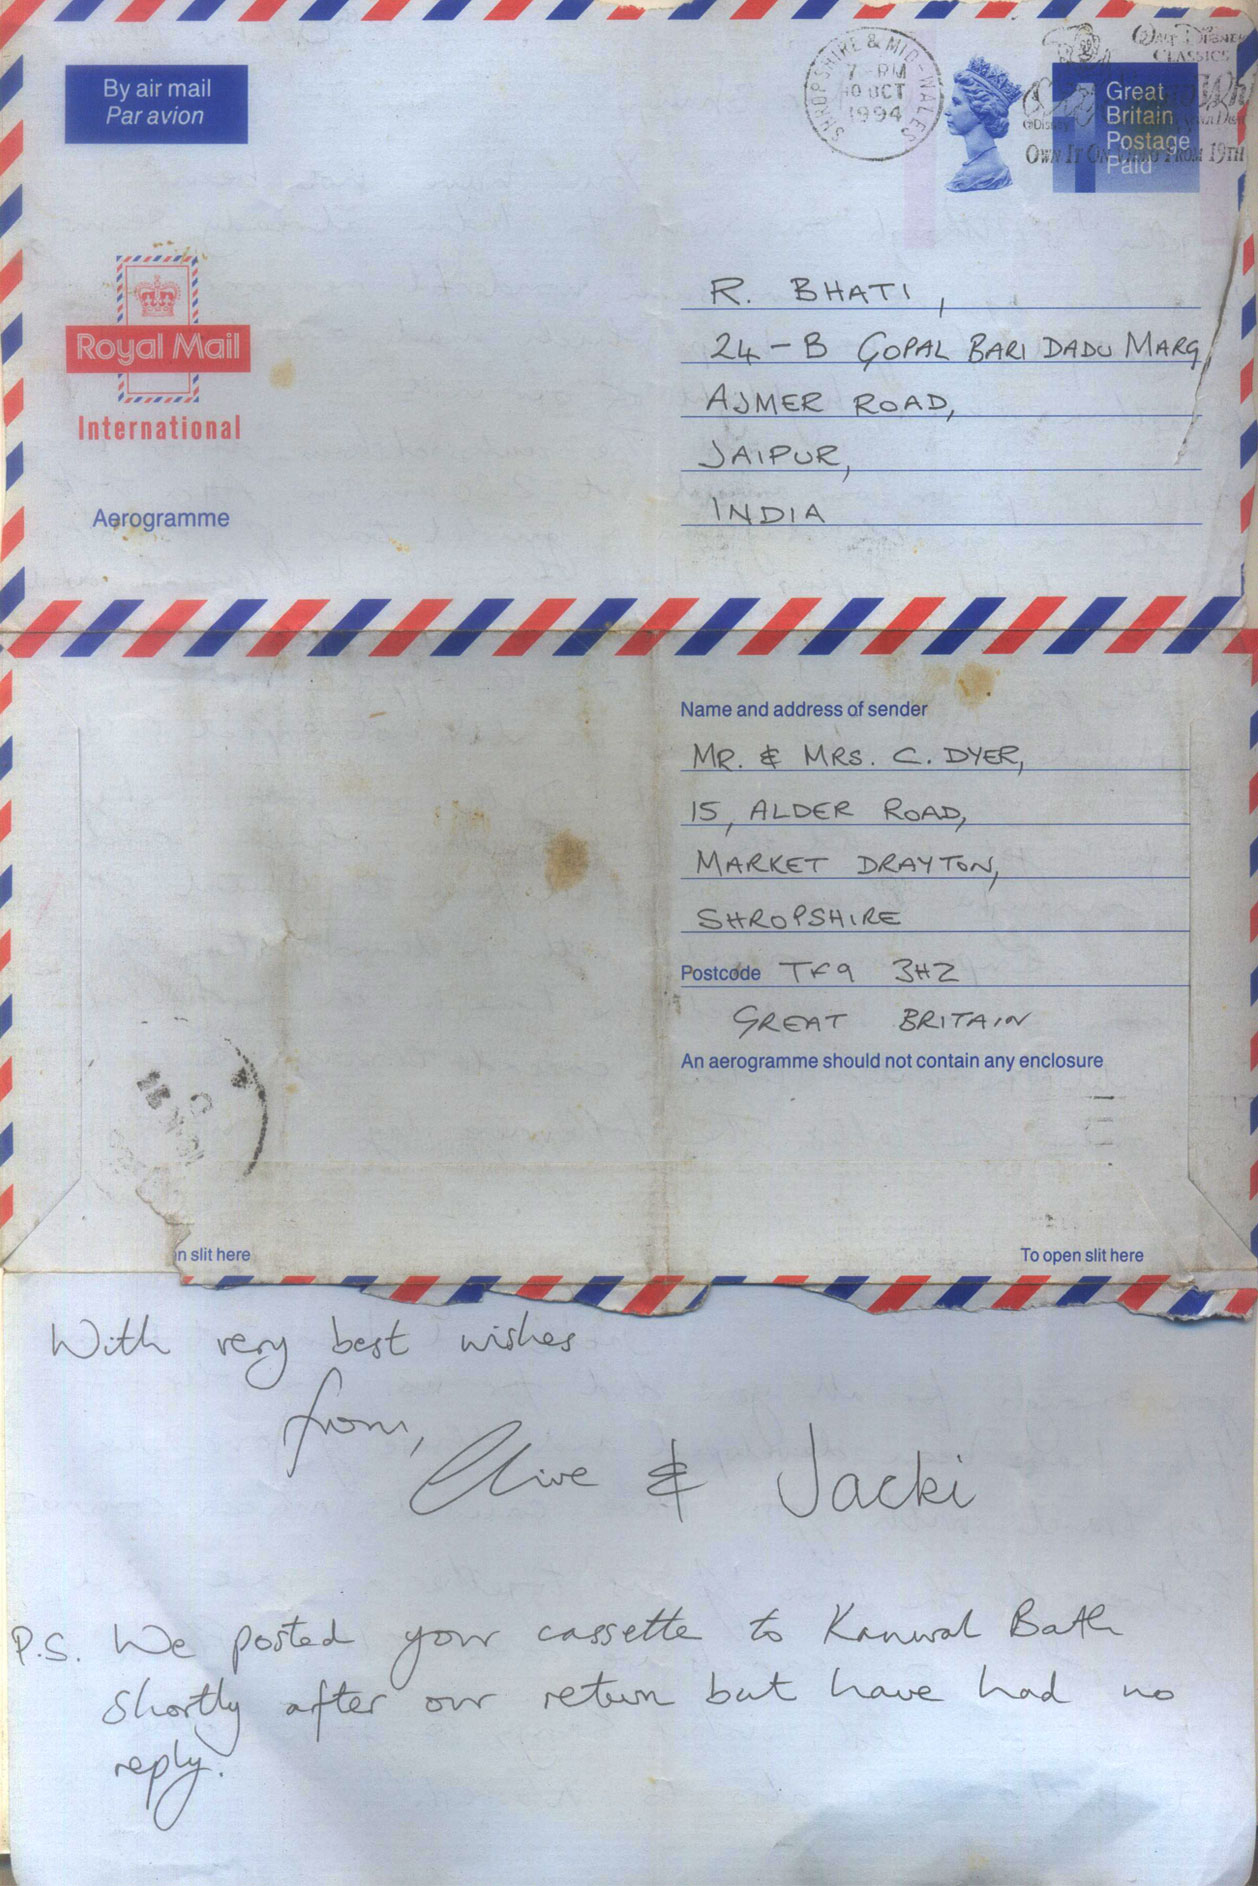 By air mail
Par avion
SHROPSHIRE & MID-WALES
7 PM
10 OCT
1994
WALT DISNEY
CLASSICS
©Disney
OWN IT ON VIDEO FROM 19TH
Great
Britain
Postage
Paid
Royal Mail
International
Aerogramme
R. BHATI,
24-B GOPAL BARI DADU MARG
AJMER ROAD,
JAIPUR,
INDIA
Name and address of sender
MR. & MRS. C. DYER,
15, ALDER ROAD,
MARKET DRAYTON,
SHROPSHIRE
Postcode TF9 3HZ
GREAT BRITAIN
An aerogramme should not contain any enclosure
n slit here
To open slit here
With very best wishes
from,
Clive & Jacki
P.S. We posted your cassette to Kanwal Bath
shortly after our return but have had no
reply.